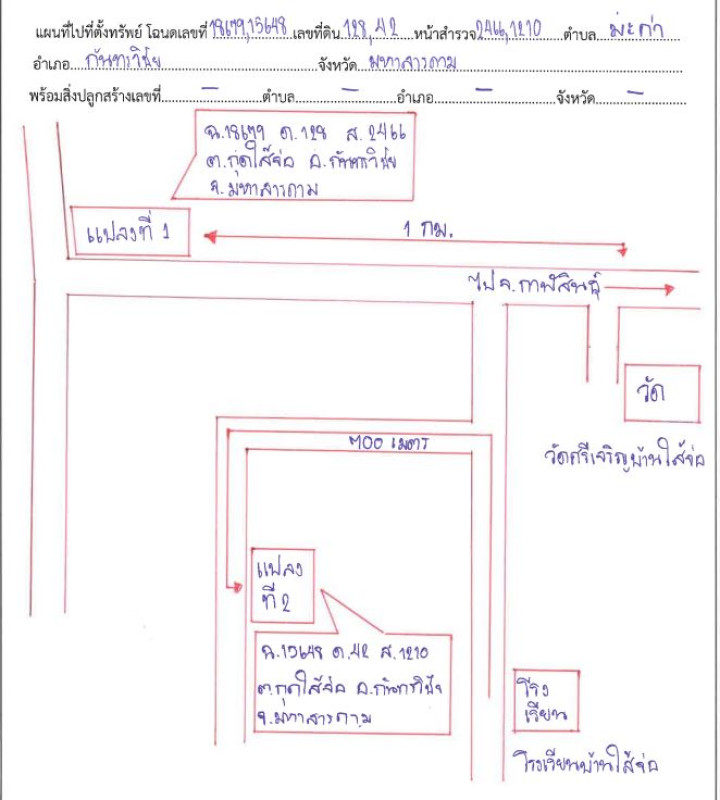 แผนที่ไปที่ตั้งทรัพย์ โฉนดเลขที่ 18679,15648 เลขที่ดิน 128,42 หน้าสำรวจ 2466,1210 ตำบล มะค่า
อำเภอ กันทรวิชัย จังหวัด มหาสารคาม
พร้อมสิ่งปลูกสร้างเลขที่ - ตำบล - อำเภอ - จังหวัด -
ฉ.18679 ด.128 ส.2466
ต.กุดใส้จ่อ อ.กันทรวิชัย
จ.มหาสารคาม
แปลงที่ 1
1 กม.
ไป จ.กาฬสินธุ์
วัด
วัดศรีเจริญบ้านใส้จ่อ
700 เมตร
แปลง
ที่ 2
ฉ.15648 ด.42 ส.1210
ต.กุดใส้จ่อ อ.กันทรวิชัย
จ.มหาสารคาม
โรง
เรียน
โรงเรียนบ้านใส้จ่อ